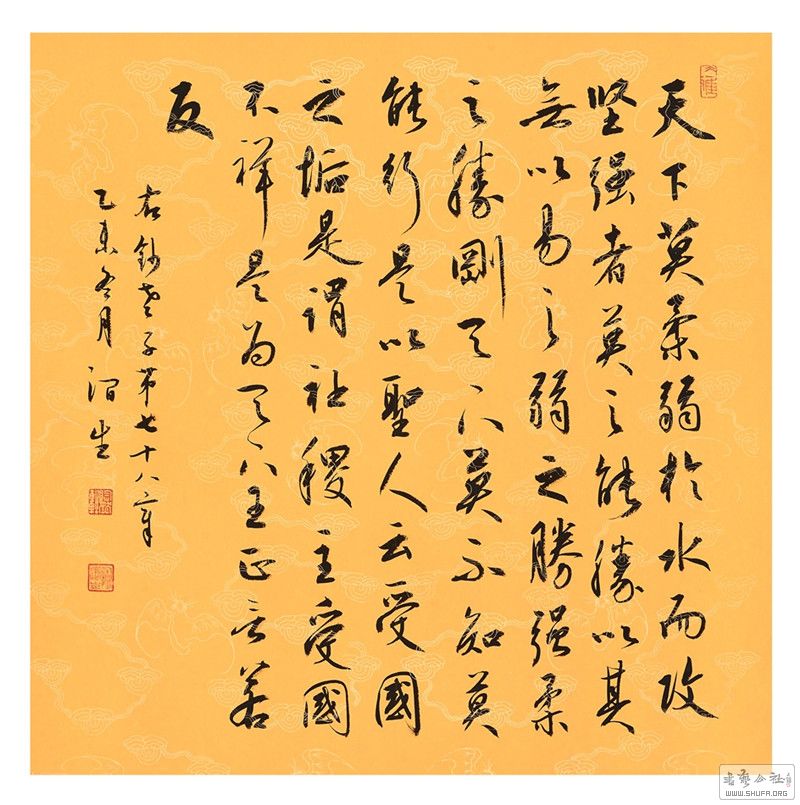 天下莫柔弱於水而攻
坚强者莫之能勝以其
無以易之弱之勝强柔
之勝剛天下莫不知莫
能行是以聖人云受國
之垢是謂社稷主受國
不祥是为天下王正言若
反
右鈔老子第七十八章
乙未冬月
書藝公社
WWW.SHUFA.ORG